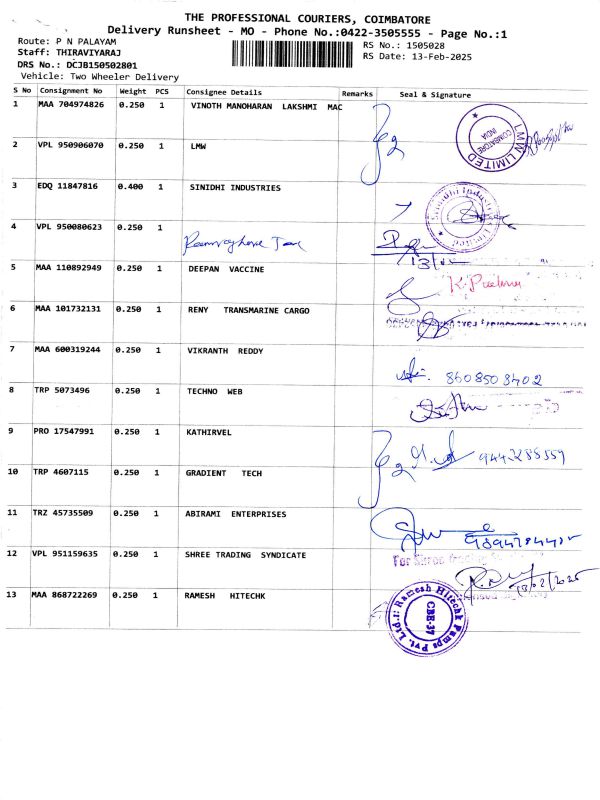 THE PROFESSIONAL COURIERS, COIMBATORE
Delivery Runsheet - MO - Phone No.:0422-3505555 - Page No.:1
Route: P N PALAYAM
RS No.: 1505028
Staff: THIRAVIYARAJ
RS Date: 13-Feb-2025
DRS No.: DCJB150502801
Vehicle: Two Wheeler Delivery
S No Consignment No Weight PCS Consignee Details Remarks Seal & Signature
1 MAA 704974826 0.250 1 VINOTH MANOHARAN LAKSHMI MAC
LMW LIMITED COIMBATORE INDIA
2 VPL 950906070 0.250 1 LMW
3 EDQ 11847816 0.400 1 SINIDHI INDUSTRIES
4 VPL 950080623 0.250 1
13/
5 MAA 110892949 0.250 1 DEEPAN VACCINE
6 MAA 101732131 0.250 1 RENY TRANSMARINE CARGO
7 MAA 600319244 0.250 1 VIKRANTH REDDY
8608503402
8 TRP 5073496 0.250 1 TECHNO WEB
9 PRO 17547991 0.250 1 KATHIRVEL
9442285559
10 TRP 4607115 0.250 1 GRADIENT TECH
11 TRZ 45735509 0.250 1 ABIRAMI ENTERPRISES
12 VPL 951159635 0.250 1 SHREE TRADING SYNDICATE
For Shree
13/02/2025
13 MAA 868722269 0.250 1 RAMESH HITECHK
Ramesh Hitechk Pumps Pvt. Ltd.
CBE-37